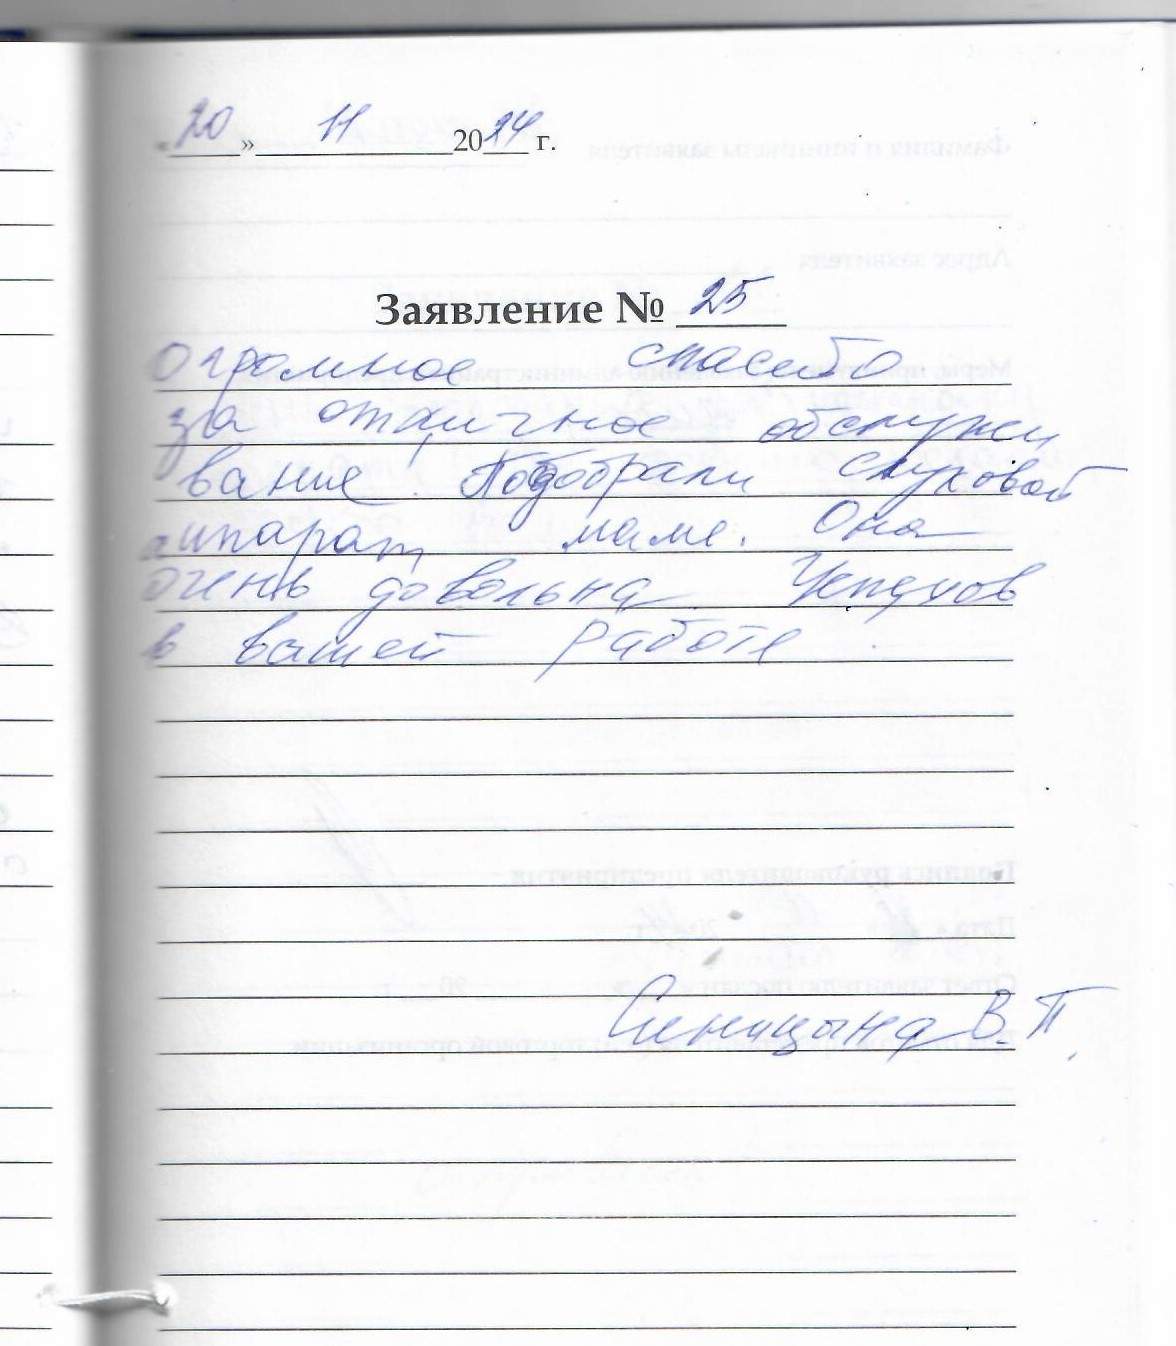 «20» 11 2024 г.
Заявление № 25
Огромное спасебо
за отличное обслужи
вание. Подобрали слуховой
аппарат маме. Она
очень довольна. Успехов
в вашей работе.
Синицына В.П.